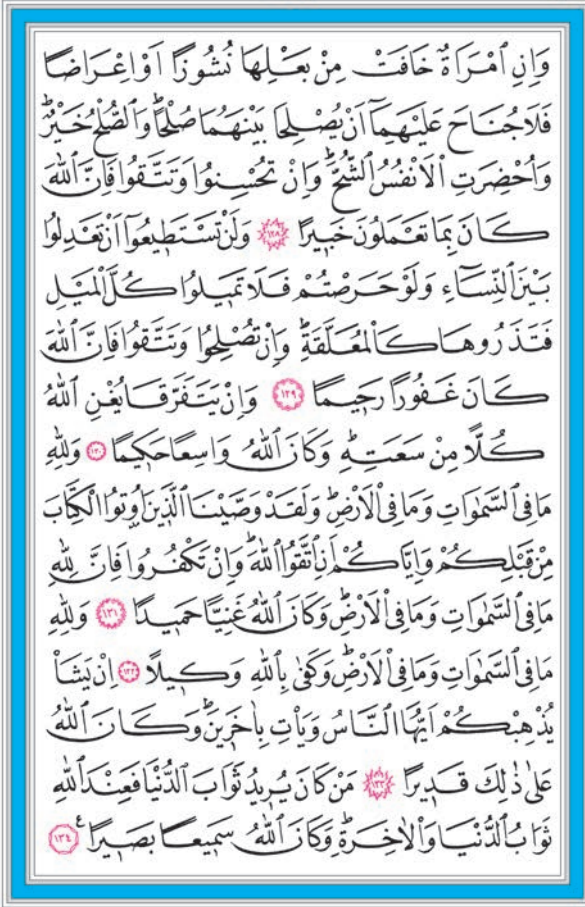 وَاِنِ ٱمْرَاَةٌ خَافَتْ مِنْ بَعْلِهَا نُشُوزًا اَوْ اِعْرَاضًا
فَلَا جُنَاحَ عَلَيْهِمَٓا اَنْ يُصْلِحَا بَيْنَهُمَا صُلْحًاۜ وَٱلصُّلْحُ خَيْرٌۜ
وَاُحْضِرَتِ ٱلْاَنْفُسُ ٱلشُّحَّۜ وَاِنْ تُحْسِنُوا وَتَتَّقُوا فَاِنَّ ٱللّٰهَ
كَانَ بِمَا تَعْمَلُونَ خَبِيرًا ﴿١٢٨﴾ وَلَنْ تَسْتَطِيعُٓوا اَنْ تَعْدِلُوا
بَيْنَ ٱلنِّسَٓاءِ وَلَوْ حَرَصْتُمْ فَلَا تَمِيلُوا كُلَّ ٱلْمَيْلِ
فَتَذَرُوهَا كَٱلْمُعَلَّقَةِۜ وَاِنْ تُصْلِحُوا وَتَتَّقُوا فَاِنَّ ٱللّٰهَ
كَانَ غَفُورًا رَحِيمًا ﴿١٢٩﴾ وَاِنْ يَتَفَرَّقَا يُغْنِ ٱللّٰهُ
كُلًّا مِنْ سَعَتِهِۜ وَكَانَ ٱللّٰهُ وَاسِعًا حَكِيمًا ﴿١٣٠﴾ وَلِلّٰهِ
مَا فِي ٱلسَّمٰوَاتِ وَمَا فِي ٱلْاَرْضِۜ وَلَقَدْ وَصَّيْنَا ٱلَّذِينَ اُو۫تُوا ٱلْكِتَابَ
مِنْ قَبْلِكُمْ وَاِيَّاكُمْ اَنِ ٱتَّقُوا ٱللّٰهَۜ وَاِنْ تَكْفُرُوا فَاِنَّ لِلّٰهِ
مَا فِي ٱلسَّمٰوَاتِ وَمَا فِي ٱلْاَرْضِۜ وَكَانَ ٱللّٰهُ غَنِيًّا حَمِيدًا ﴿١٣١﴾ وَلِلّٰهِ
مَا فِي ٱلسَّمٰوَاتِ وَمَا فِي ٱلْاَرْضِۜ وَكَفٰى بِٱللّٰهِ وَكِيلًا ﴿١٣٢﴾ اِنْ يَشَأْ
يُذْهِبْكُمْ اَيُّهَا ٱلنَّاسُ وَيَأْتِ بِاٰخَرِينَۜ وَكَانَ ٱللّٰهُ
عَلٰى ذٰلِكَ قَدِيرًا ﴿١٣٣﴾ مَنْ كَانَ يُرِيدُ ثَوَابَ ٱلدُّنْيَا فَعِنْدَ ٱللّٰهِ
ثَوَابُ ٱلدُّنْيَا وَٱلْاٰخِرَةِۜ وَكَانَ ٱللّٰهُ سَمِيعًا بَصِيرًا ع ﴿١٣٤﴾